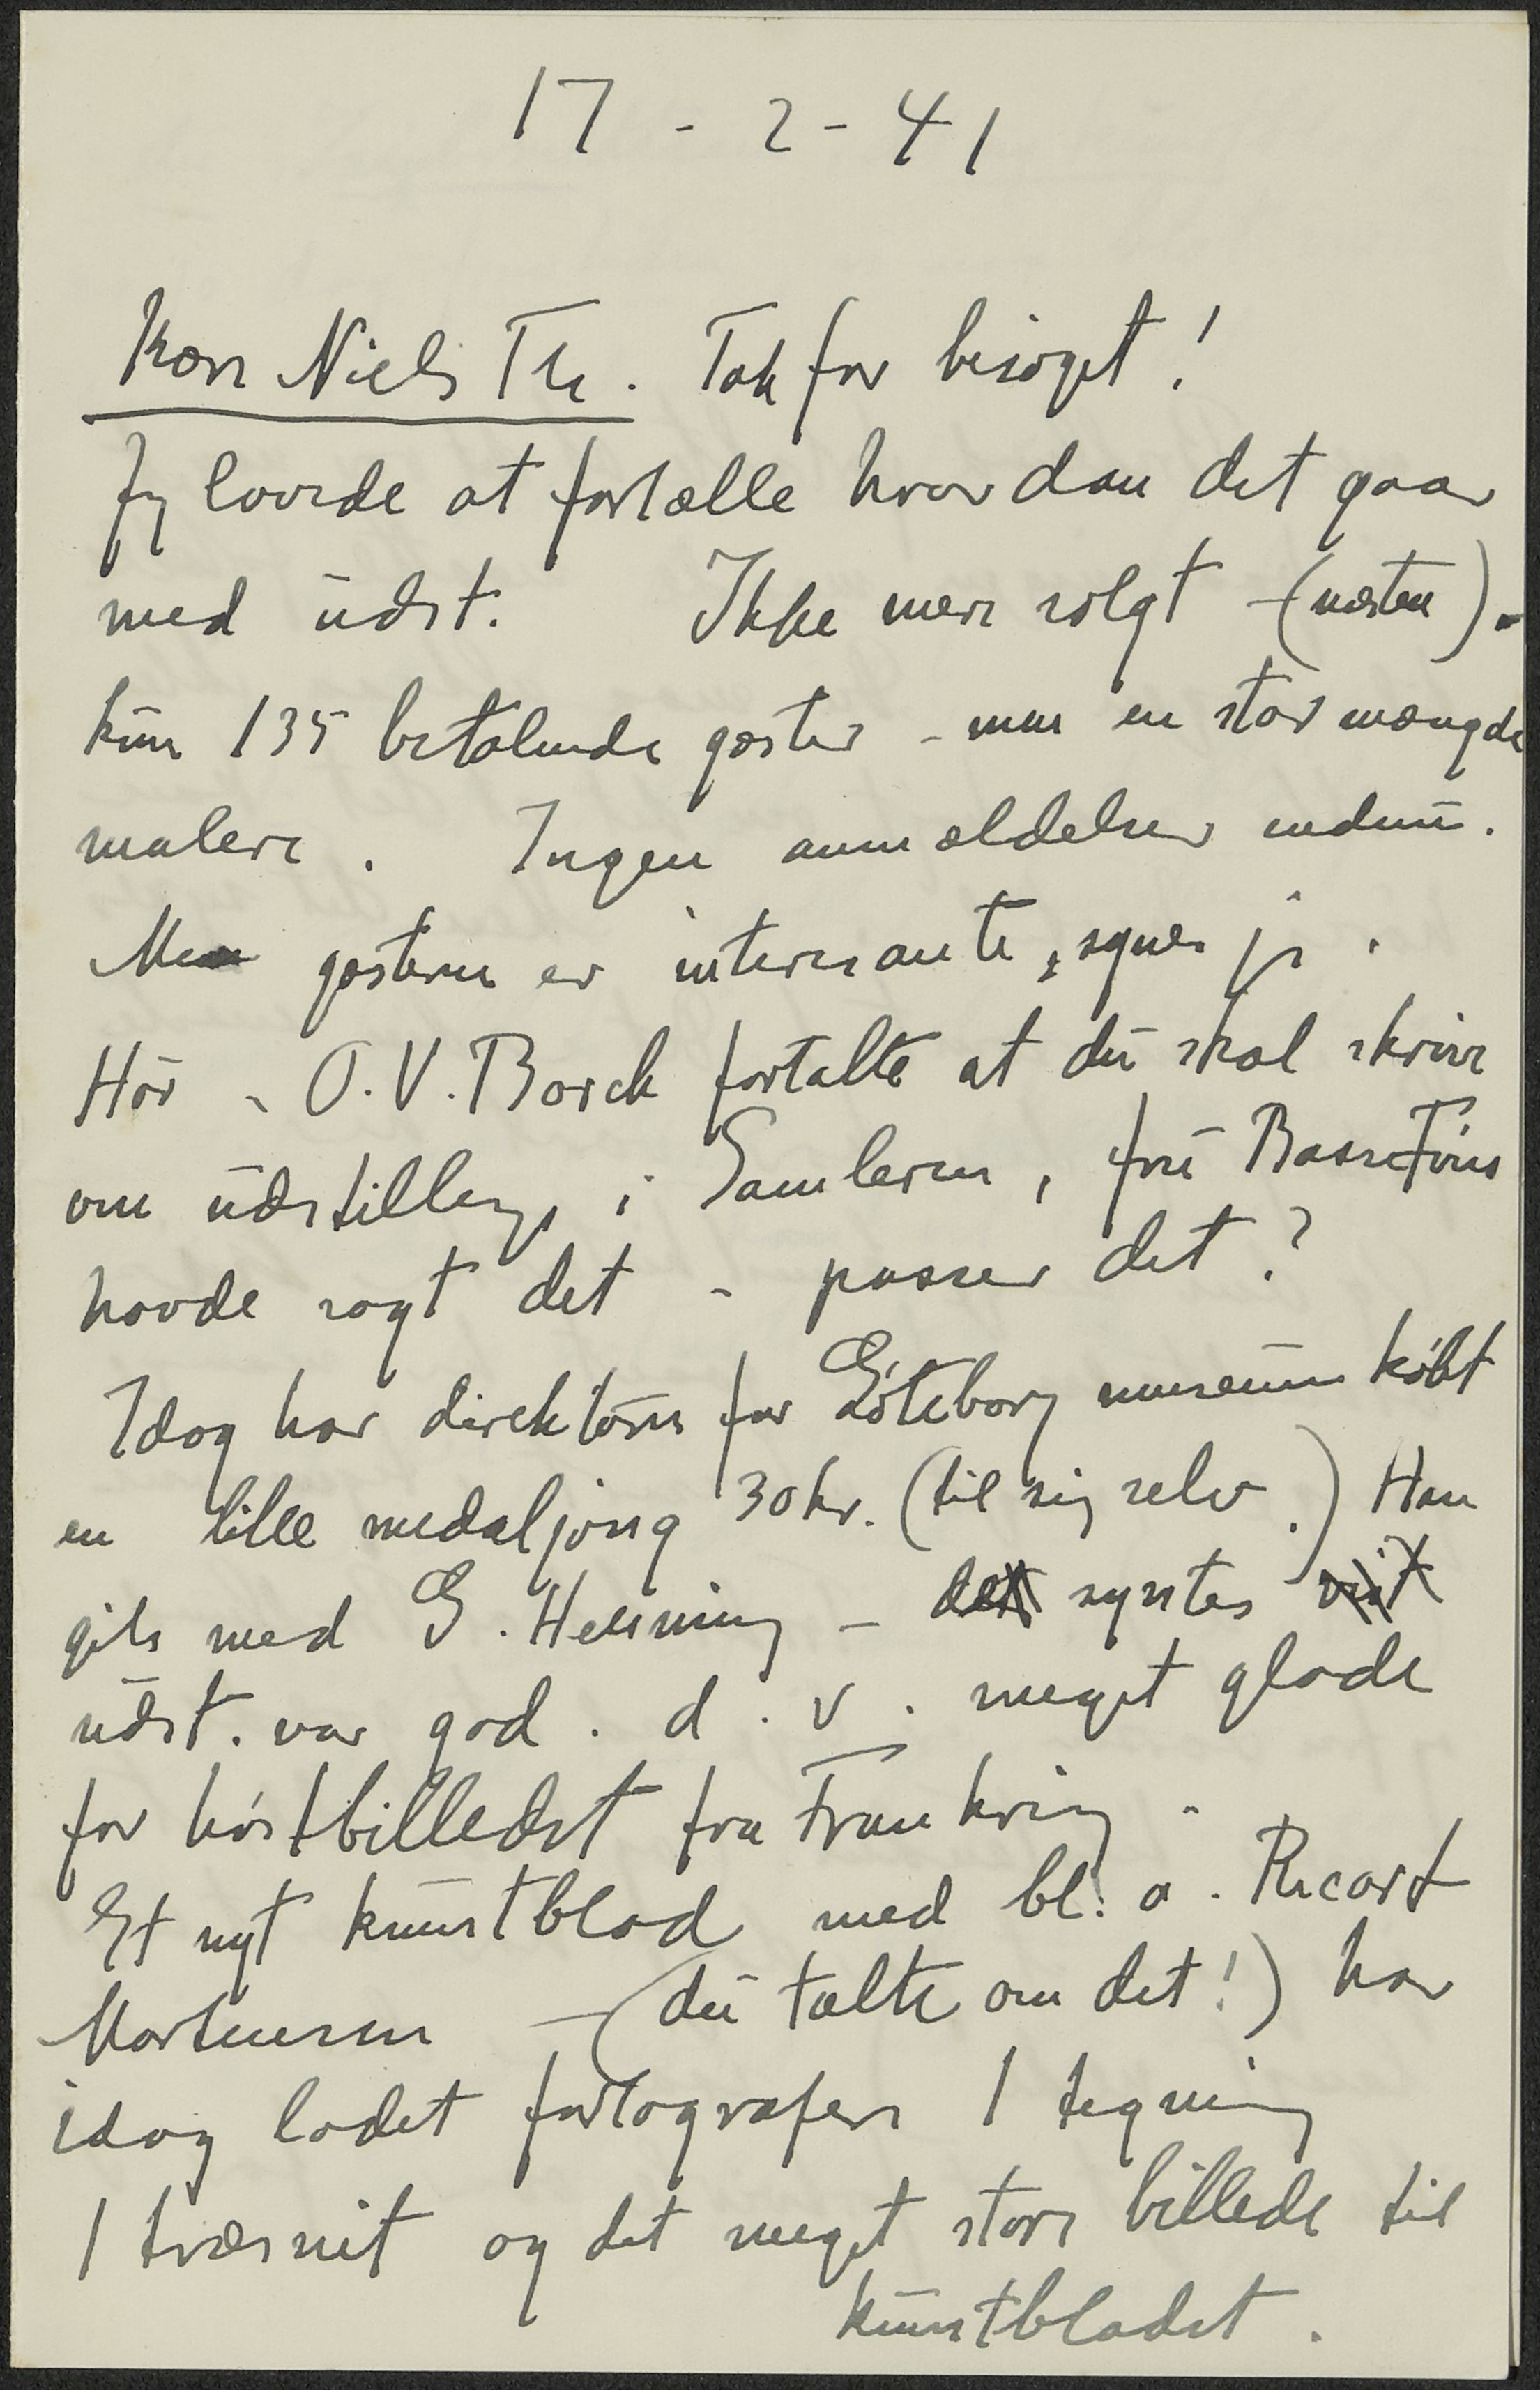 17 - 2 - 41
Kære Niels Th. Tak for besøget!
Jeg lovede at fortælle hvordan det gaar
med udst. Ikke mere solgt - (næsten) -
kun 135 betalende gæster - men en stor mængde
malere. Ingen anmældelser endnu.
Men gæsterne er interesante, synes jeg.
Hør - O.V. Borch fortalte at du skal skrive
om udstilling i Samleren, fru Basse Föns
havde sagt det - passer det?
Idag har direktøren for Göteborg museum købt
en lille medaljong 30 kr. (til sig selv.) Han
gik med G. Henning - det syntes vist
udst. var god. d. v. meget glade
for høstbilledet fra Frankrig -
Et nyt kunstblad med bl. a. Ricart
Mortensen - (du talte om det!) har
idag ladet fortografere 1 tegning
1 træsnit og det meget store billede til
kunstbladet.